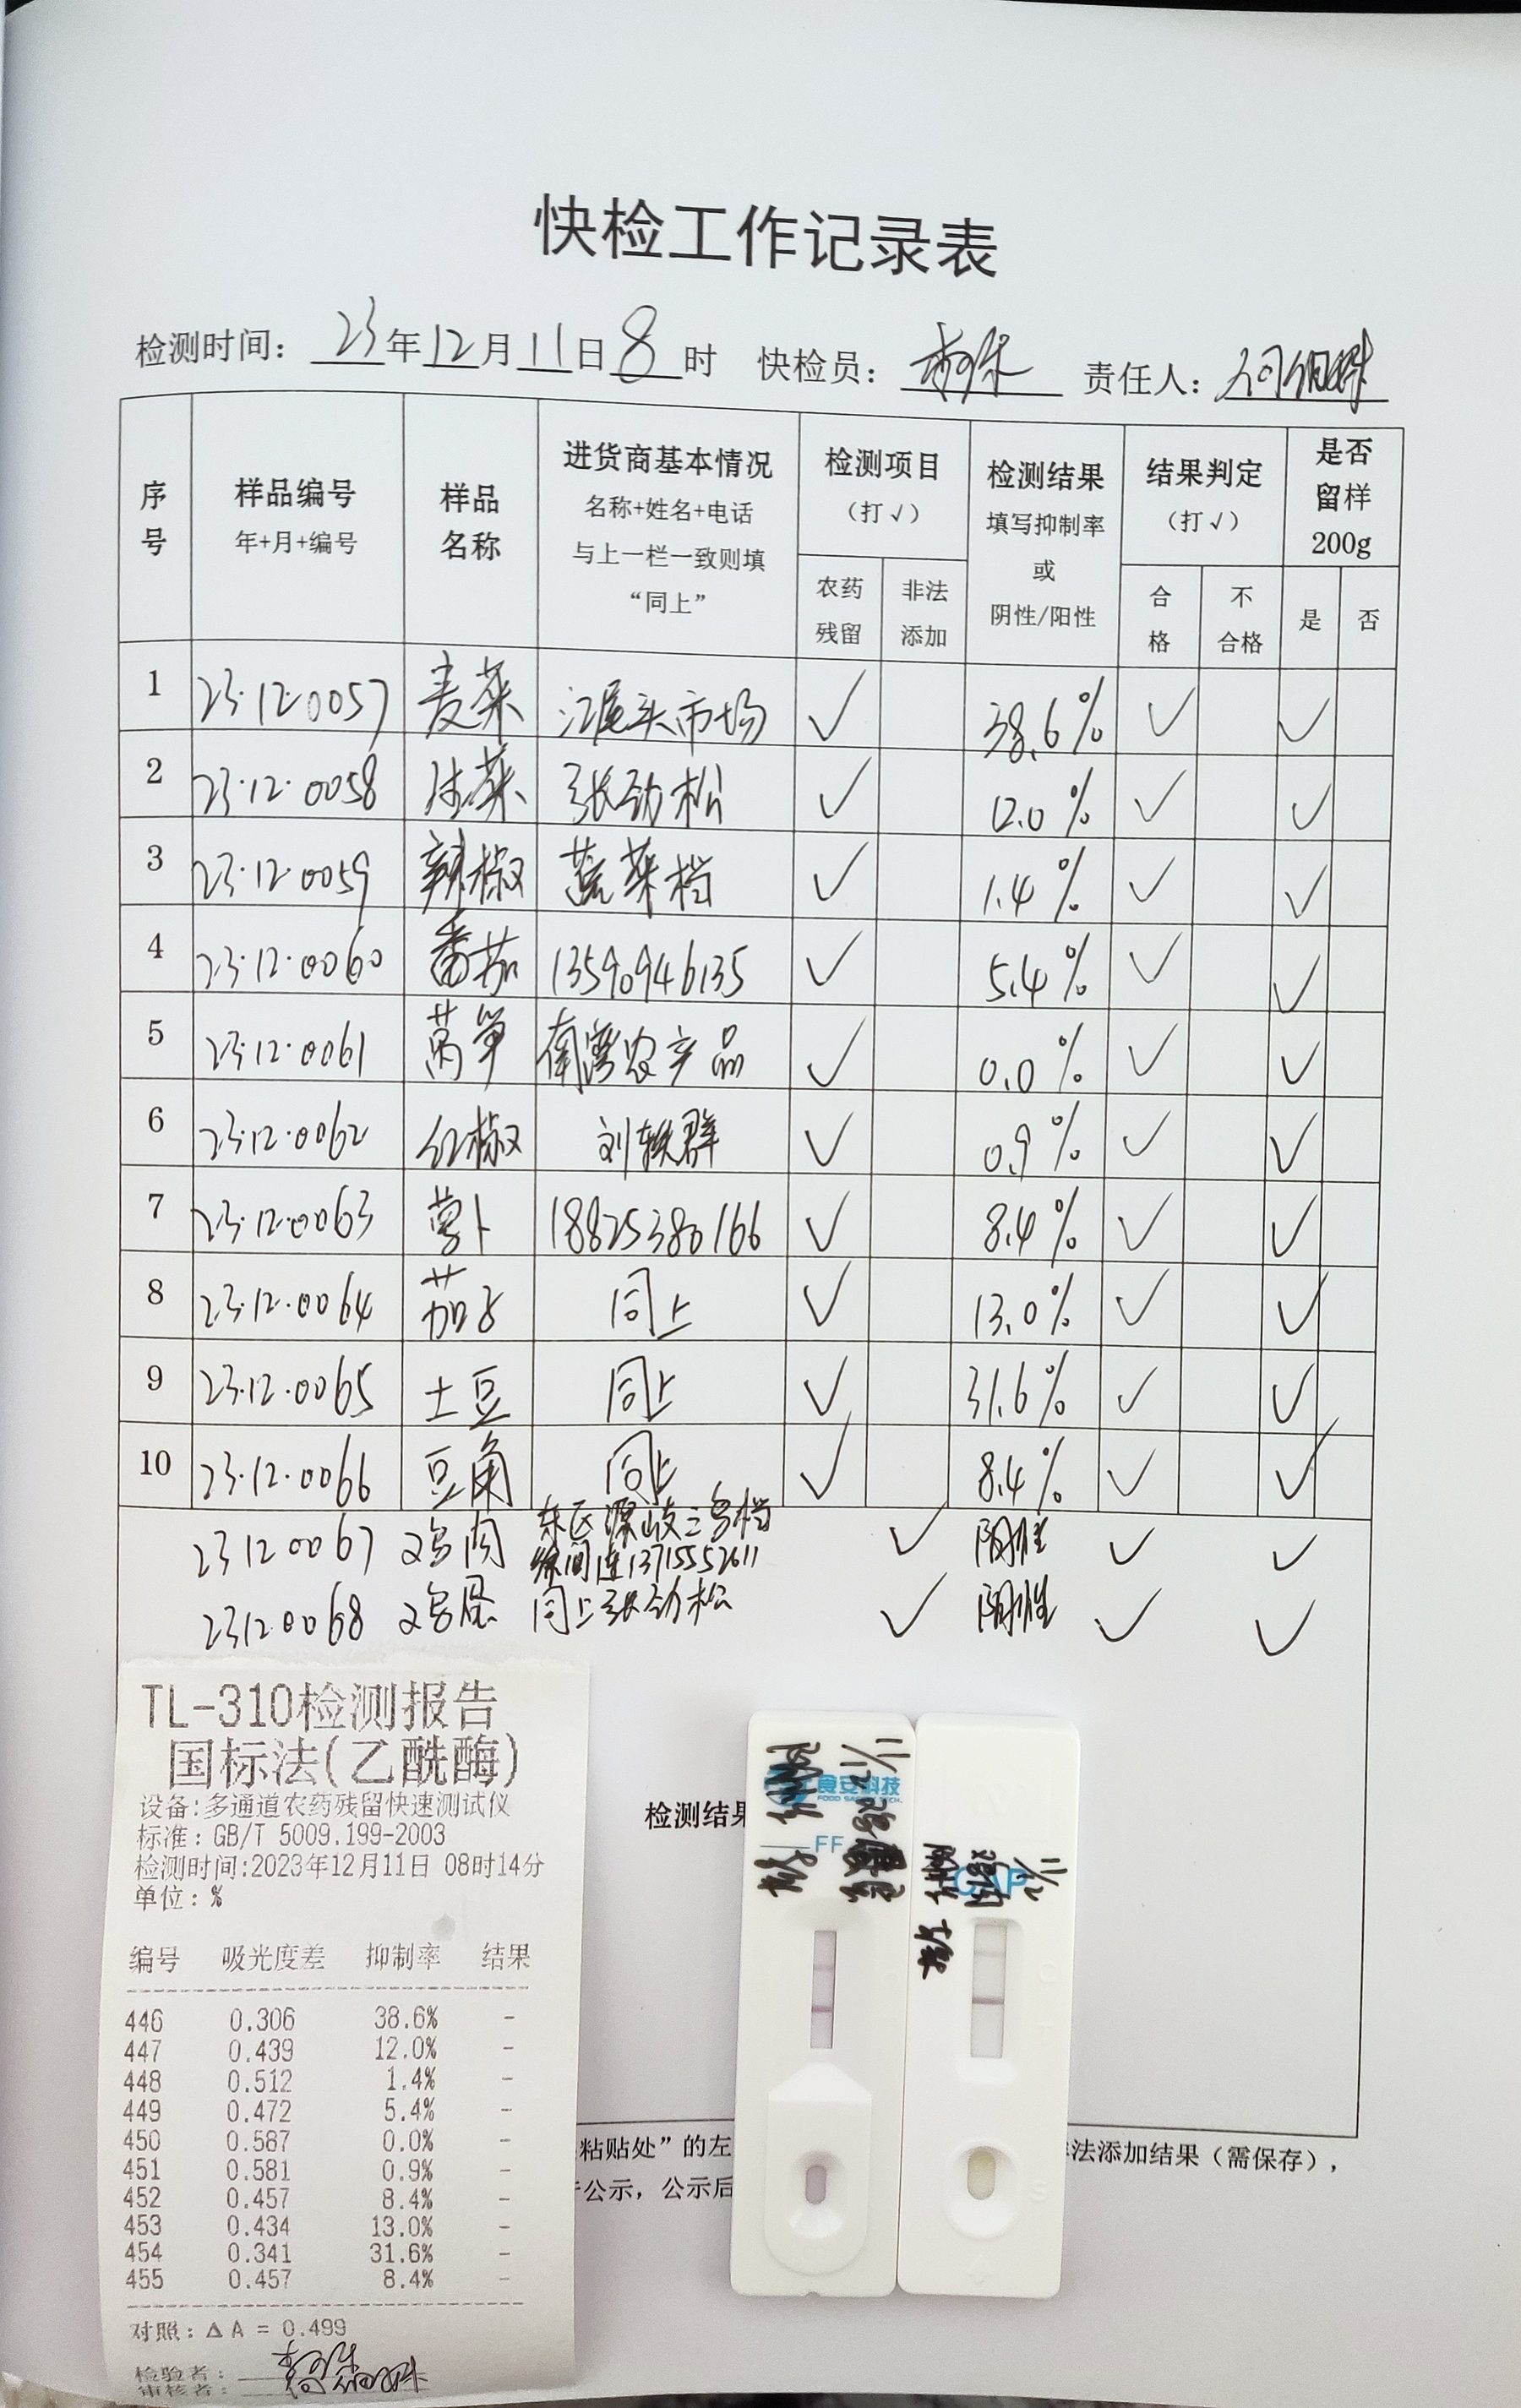 快检工作记录表
检测时间： 23年12月11日8时 快检员： 责任人：
序号 样品编号 年+月+编号 样品名称 进货商基本情况 名称+姓名+电话 与上一栏一致则填“同上” 检测项目（打√） 农药残留 非法添加 检测结果 填写抑制率或阴性/阳性 结果判定（打√） 合格 不合格 是否留样200g 是 否
1 23.12.0057 麦菜 江尾头市场 √ 38.6% √ √
2 23.12.0058 菜 张劲松 √ 12.0% √ √
3 23.12.0059 辣椒 蔬菜档 √ 1.4% √ √
4 23.12.0060 番茄 13590946135 √ 5.4% √ √
5 23.12.0061 莴笋 南湾农产品 √ 0.0% √ √
6 23.12.0062 红椒 刘轶群 √ 0.9% √ √
7 23.12.0063 萝卜 18825380166 √ 8.4% √ √
8 23.12.0064 茄子 同上 √ 13.0% √ √
9 23.12.0065 土豆 同上 √ 31.6% √ √
10 23.12.0066 豆角 同上 √ 8.4% √ √
23120067 鸡肉 东区深岐三鸟档 √ 阴性 √ √
13715552611
23120068 鸡 同上张劲松 √ 阴性 √ √
TL-310检测报告
国标法(乙酰酶)
设备:多通道农药残留快速测试仪
标准：GB/T 5009.199-2003
检测时间:2023年12月11日 08时14分
单位：%
编号 吸光度差 抑制率 结果
446 0.306 38.6% -
447 0.439 12.0% -
448 0.512 1.4% -
449 0.472 5.4% -
450 0.587 0.0% -
451 0.581 0.9% -
452 0.457 8.4% -
453 0.434 13.0% -
454 0.341 31.6% -
455 0.457 8.4% -
对照：△A = 0.499
检验者：
审核者：
检测结果
食安科技
FOOD
FF
11/12
CAP
11/12
C
T
S
粘贴处”的左
法添加结果（需保存），
公示，公示后